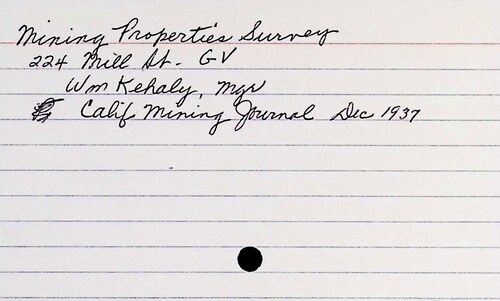 Mining Properties Survey
224 Mill St. GV
Wm Kehaly, mgr
Calif Mining Journal Dec 1937